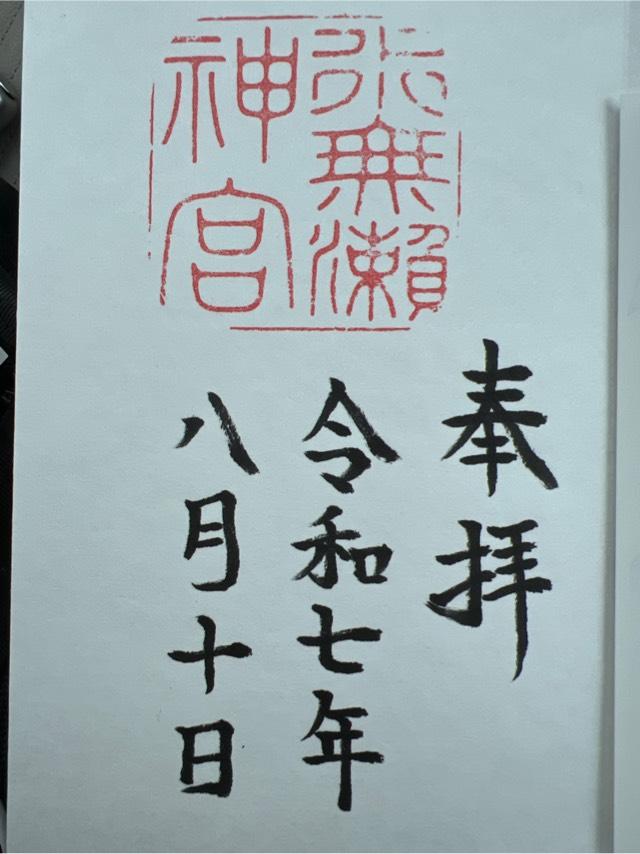 水無瀬
神宮
奉拝
令和七年
八月十日